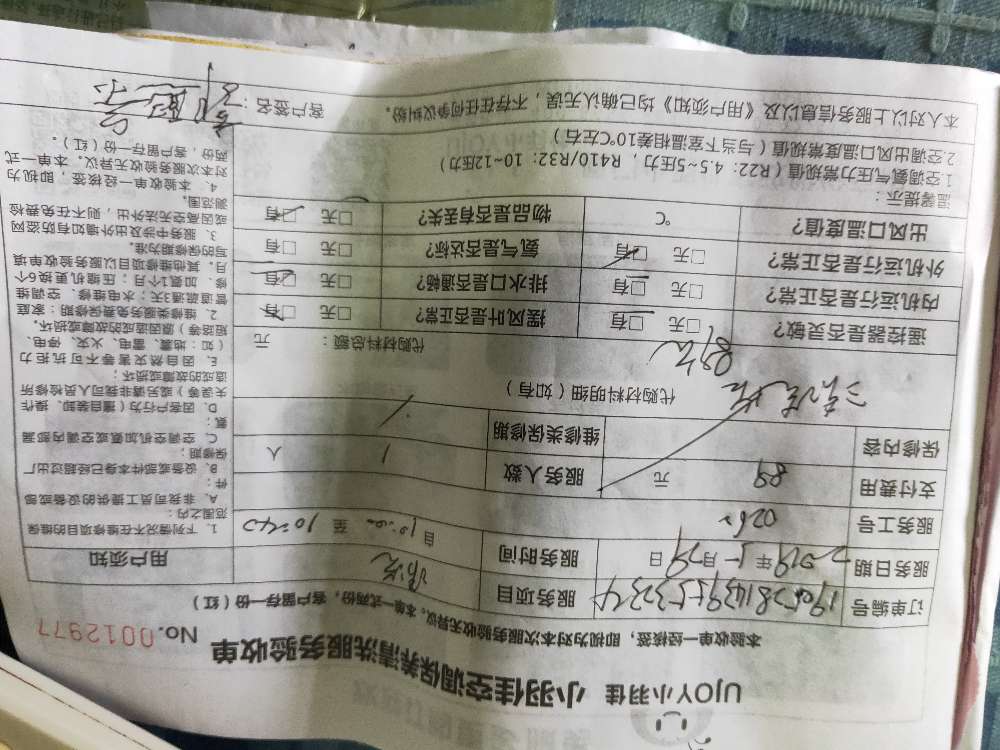 UJOY小羽佳 小羽佳空调保养清洗服务验收单
No. 0012977
本验收单一经核签，即视为对本次服务验收无异议。本单一式两份，客户留存一份（红）
订单编号 服务项目 清洗
服务日期 2019年5月29日 服务时间 自10:00至10:40
服务工号
支付费用 89 元 服务人数 1 人
保修内容 维修类保修期 /
代购材料明细（如有）
代购材料总额： 元
遥控器是否灵敏？ □无 □有 摆风叶是否正常？ □无 □有
内机运行是否正常？ □无 □有 排水口是否通畅？ □无 □有
外机运行是否正常？ □无 □有 氨气是否达标？ □无 □有
出风口温度值？ ℃ 物品是否有丢失？ □无 □有
温馨提示：
1空调氨气压力常规值（R22：4.5~5压力，R410/R32：10~12压力）
2空调出风口温度常规值（与当下室温相差10℃左右）
本人对以上服务信息以及《用户须知》均已确认无误，不存在任何争议纠纷。 客户签名：
用户须知
1. 下列情况不在维修项目的维保
范围之内：
A. 非我司员工提供的设备或部
件；
B. 设备或部件本身已经超过出厂
保修期；
C. 空调空机加氨或空调内部漏
氨；
D. 因客户行为（擅自装卸、操作
失误等）或另请非我司人员检修所
造成的故障或损坏；
E. 因自然灾害等不可抗拒力
（如：地震、雷电、火灾、停电、
短路等）原因造成的故障或损坏。
2. 维修类服务免费保修期：家庭
管道疏通3天；水电维修、空调维
修、加氨1个月；压缩机更换6个
月。其他维修项目以服务验收单填
写的保修期为准。
3. 服务中涉及出外墙如有防盗网
或因高空无法外出，则不在免费检
测范围。
4. 本验收单一经核签，即视为
对本次服务验收无异议。本单一式
两份，客户留存一份（红）。